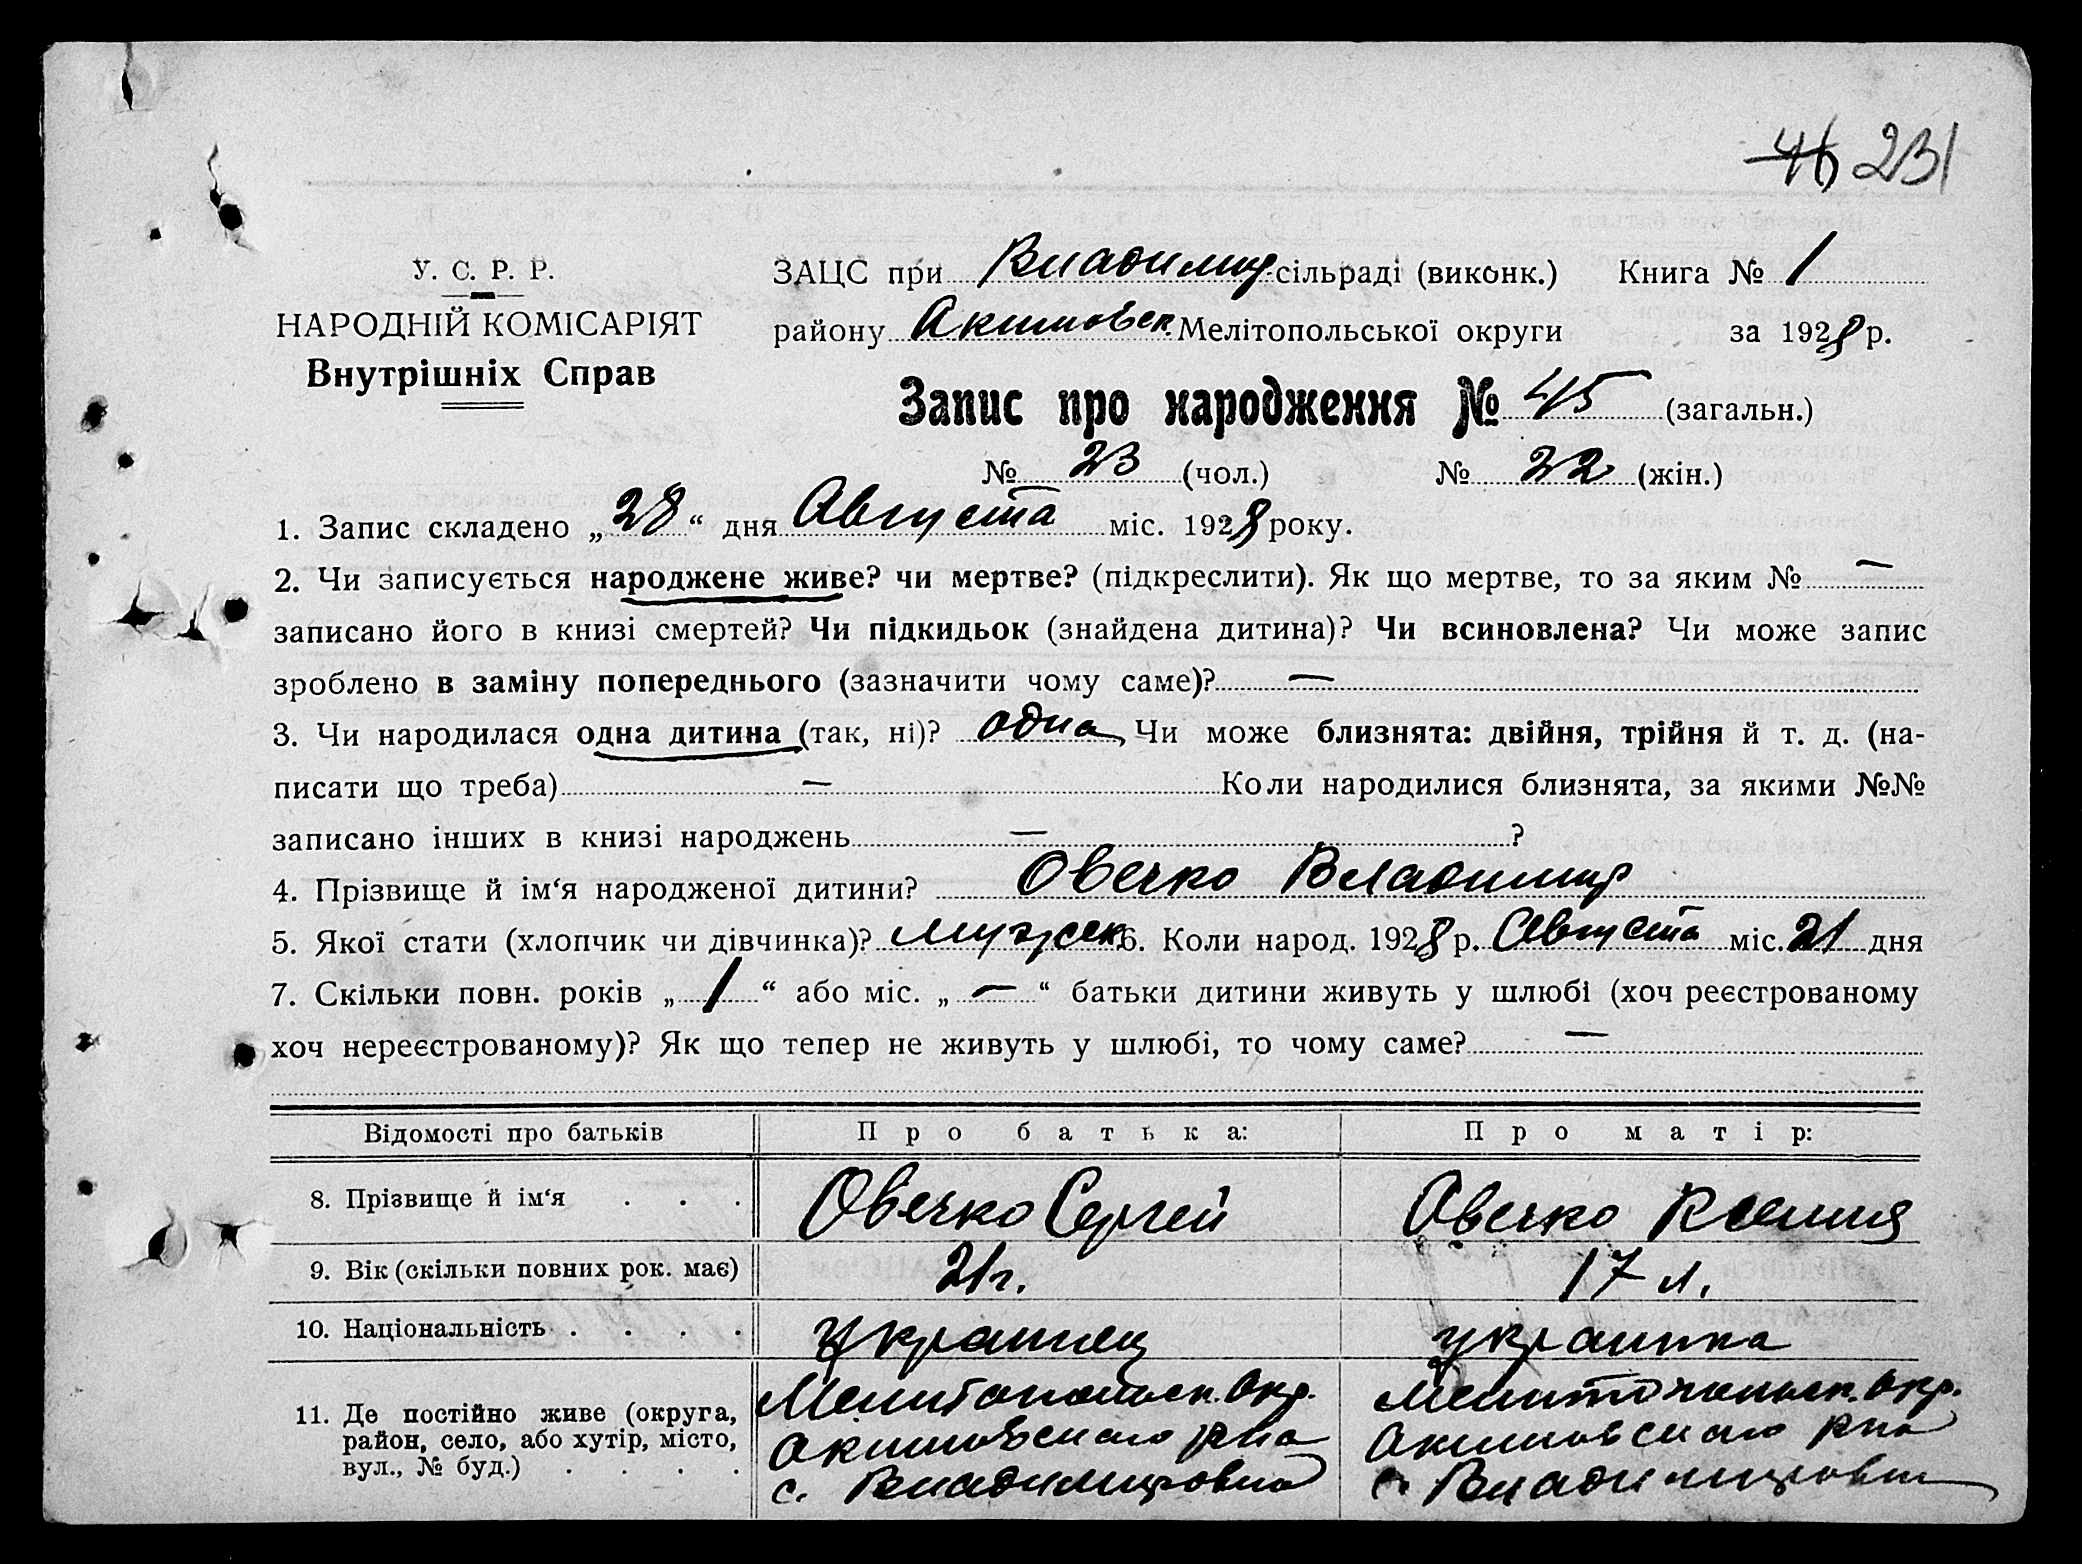 46 231
У. С. Р. Р.
НАРОДНІЙ КОМІСАРІЯТ
Внутрішніх Справ
ЗАЦС при Владимир. сільраді (виконк.) Книга № 1
району Акимовск. Мелітопольської округи за 1928 р.
Запис про народження № 45 (загальн.)
№ 23 (чол.) № 22 (жін.)
1. Запис складено „28“ дня Августа міс. 1928 року.
2. Чи записується народжене живе? чи мертве? (підкреслити). Як що мертве, то за яким № —
записано його в книзі смертей? Чи підкидьок (знайдена дитина)? Чи всиновлена? Чи може запис
зроблено в заміну попереднього (зазначити чому саме)? —
3. Чи народилася одна дитина (так, ні)? одна, Чи може близнята: двійня, трійня й т. д. (на-
писати що треба) — Коли народилися близнята, за якими №№
записано інших в книзі народжень — ?
4. Прізвище й ім‘я народженої дитини? Овечко Владимир
5. Якої стати (хлопчик чи дівчинка)? мужск. 6. Коли народ. 1928 р. Августа міс. 21 дня
7. Скільки повн. років „1“ або міс. „—“ батьки дитини живуть у шлюбі (хоч реєстрованому
хоч нереєстрованому)? Як що тепер не живуть у шлюбі, то чому саме? —
Відомості про батьків Про батька: Про матір:
8. Прізвище й ім‘я . . . Овечко Сергей Овечко Ксения
9. Вік (скільки повних рок. має) 21 г. 17 л.
10. Національність . . . . украинец украинка
11. Де постійно живе (округа, Мелитопольск. Окр. Мелитопольск. Окр.
район, село, або хутір, місто, Акимовского рна Акимовского рна
вул., № буд.) . . . . с. Владимировка с. Владимировка